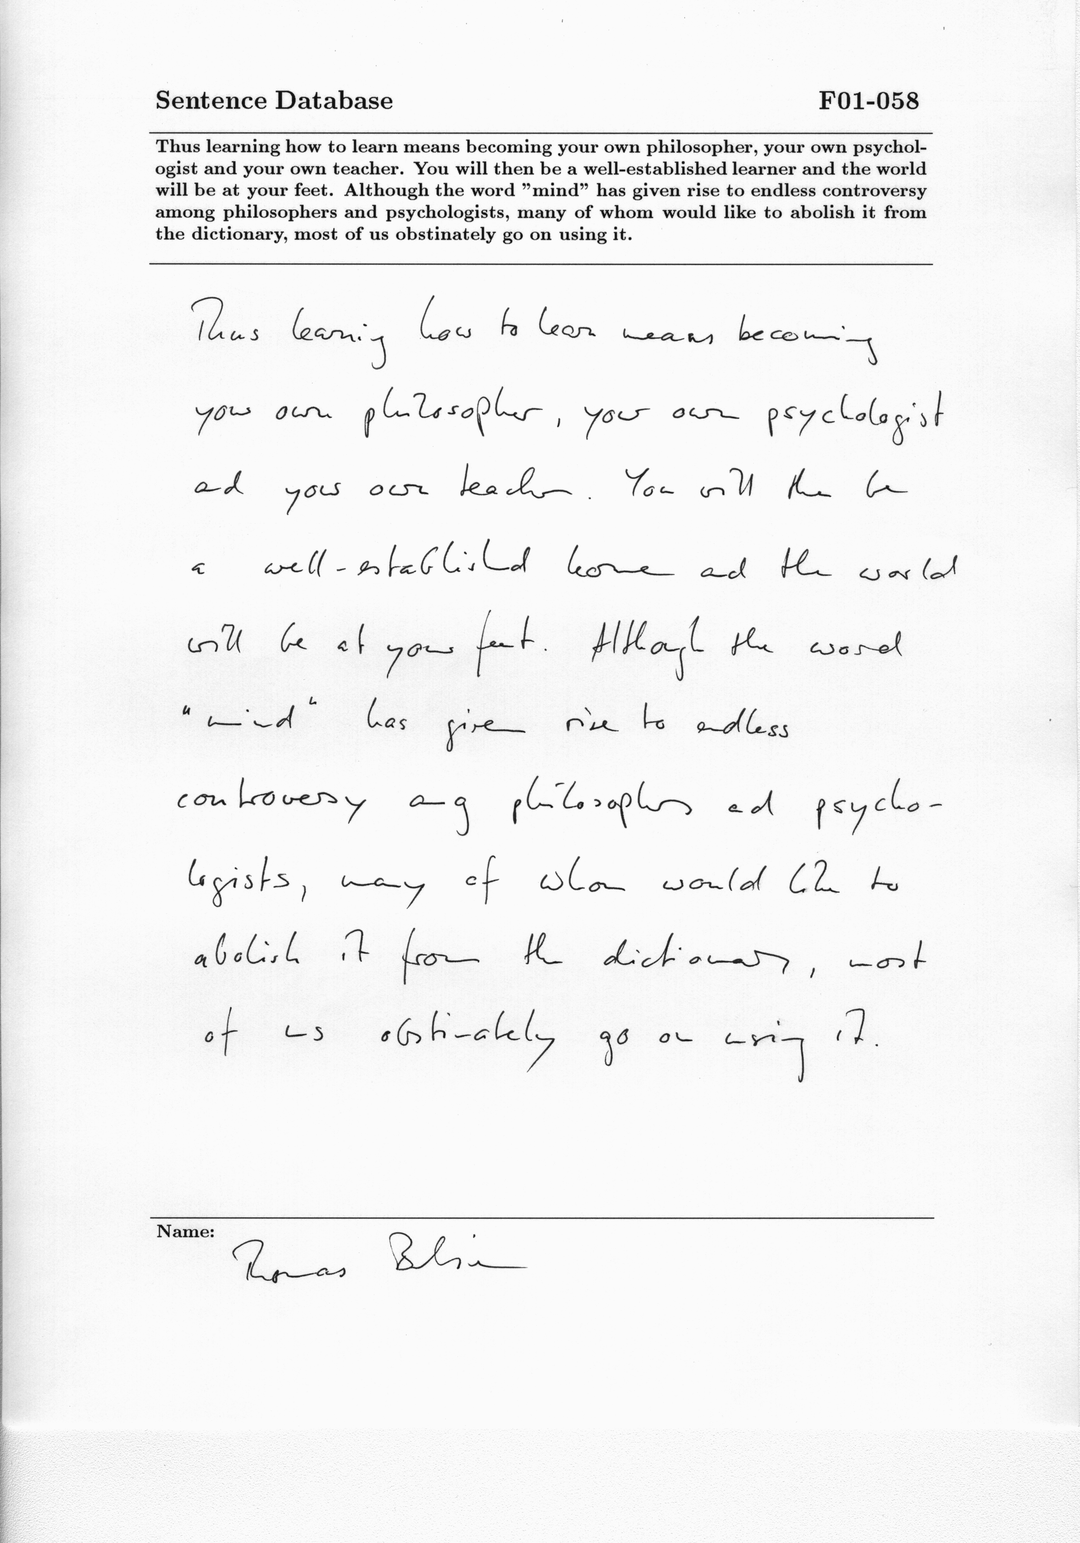 Sentence Database F01-058
Thus learning how to learn means becoming your own philosopher, your own psychol-
ogist and your own teacher. You will then be a well-established learner and the world
will be at your feet. Although the word ”mind” has given rise to endless controversy
among philosophers and psychologists, many of whom would like to abolish it from
the dictionary, most of us obstinately go on using it.
Thus learning how to learn means becoming
your own philosopher, your own psychologist
and your own teacher. You will then be
a well-established learner and the world
will be at your feet. Although the word
"mind" has given rise to endless
controversy among philosophers and psycho-
logists, many of whom would like to
abolish it from the dictionary, most
of us obstinately go on using it.
Name:
Thomas